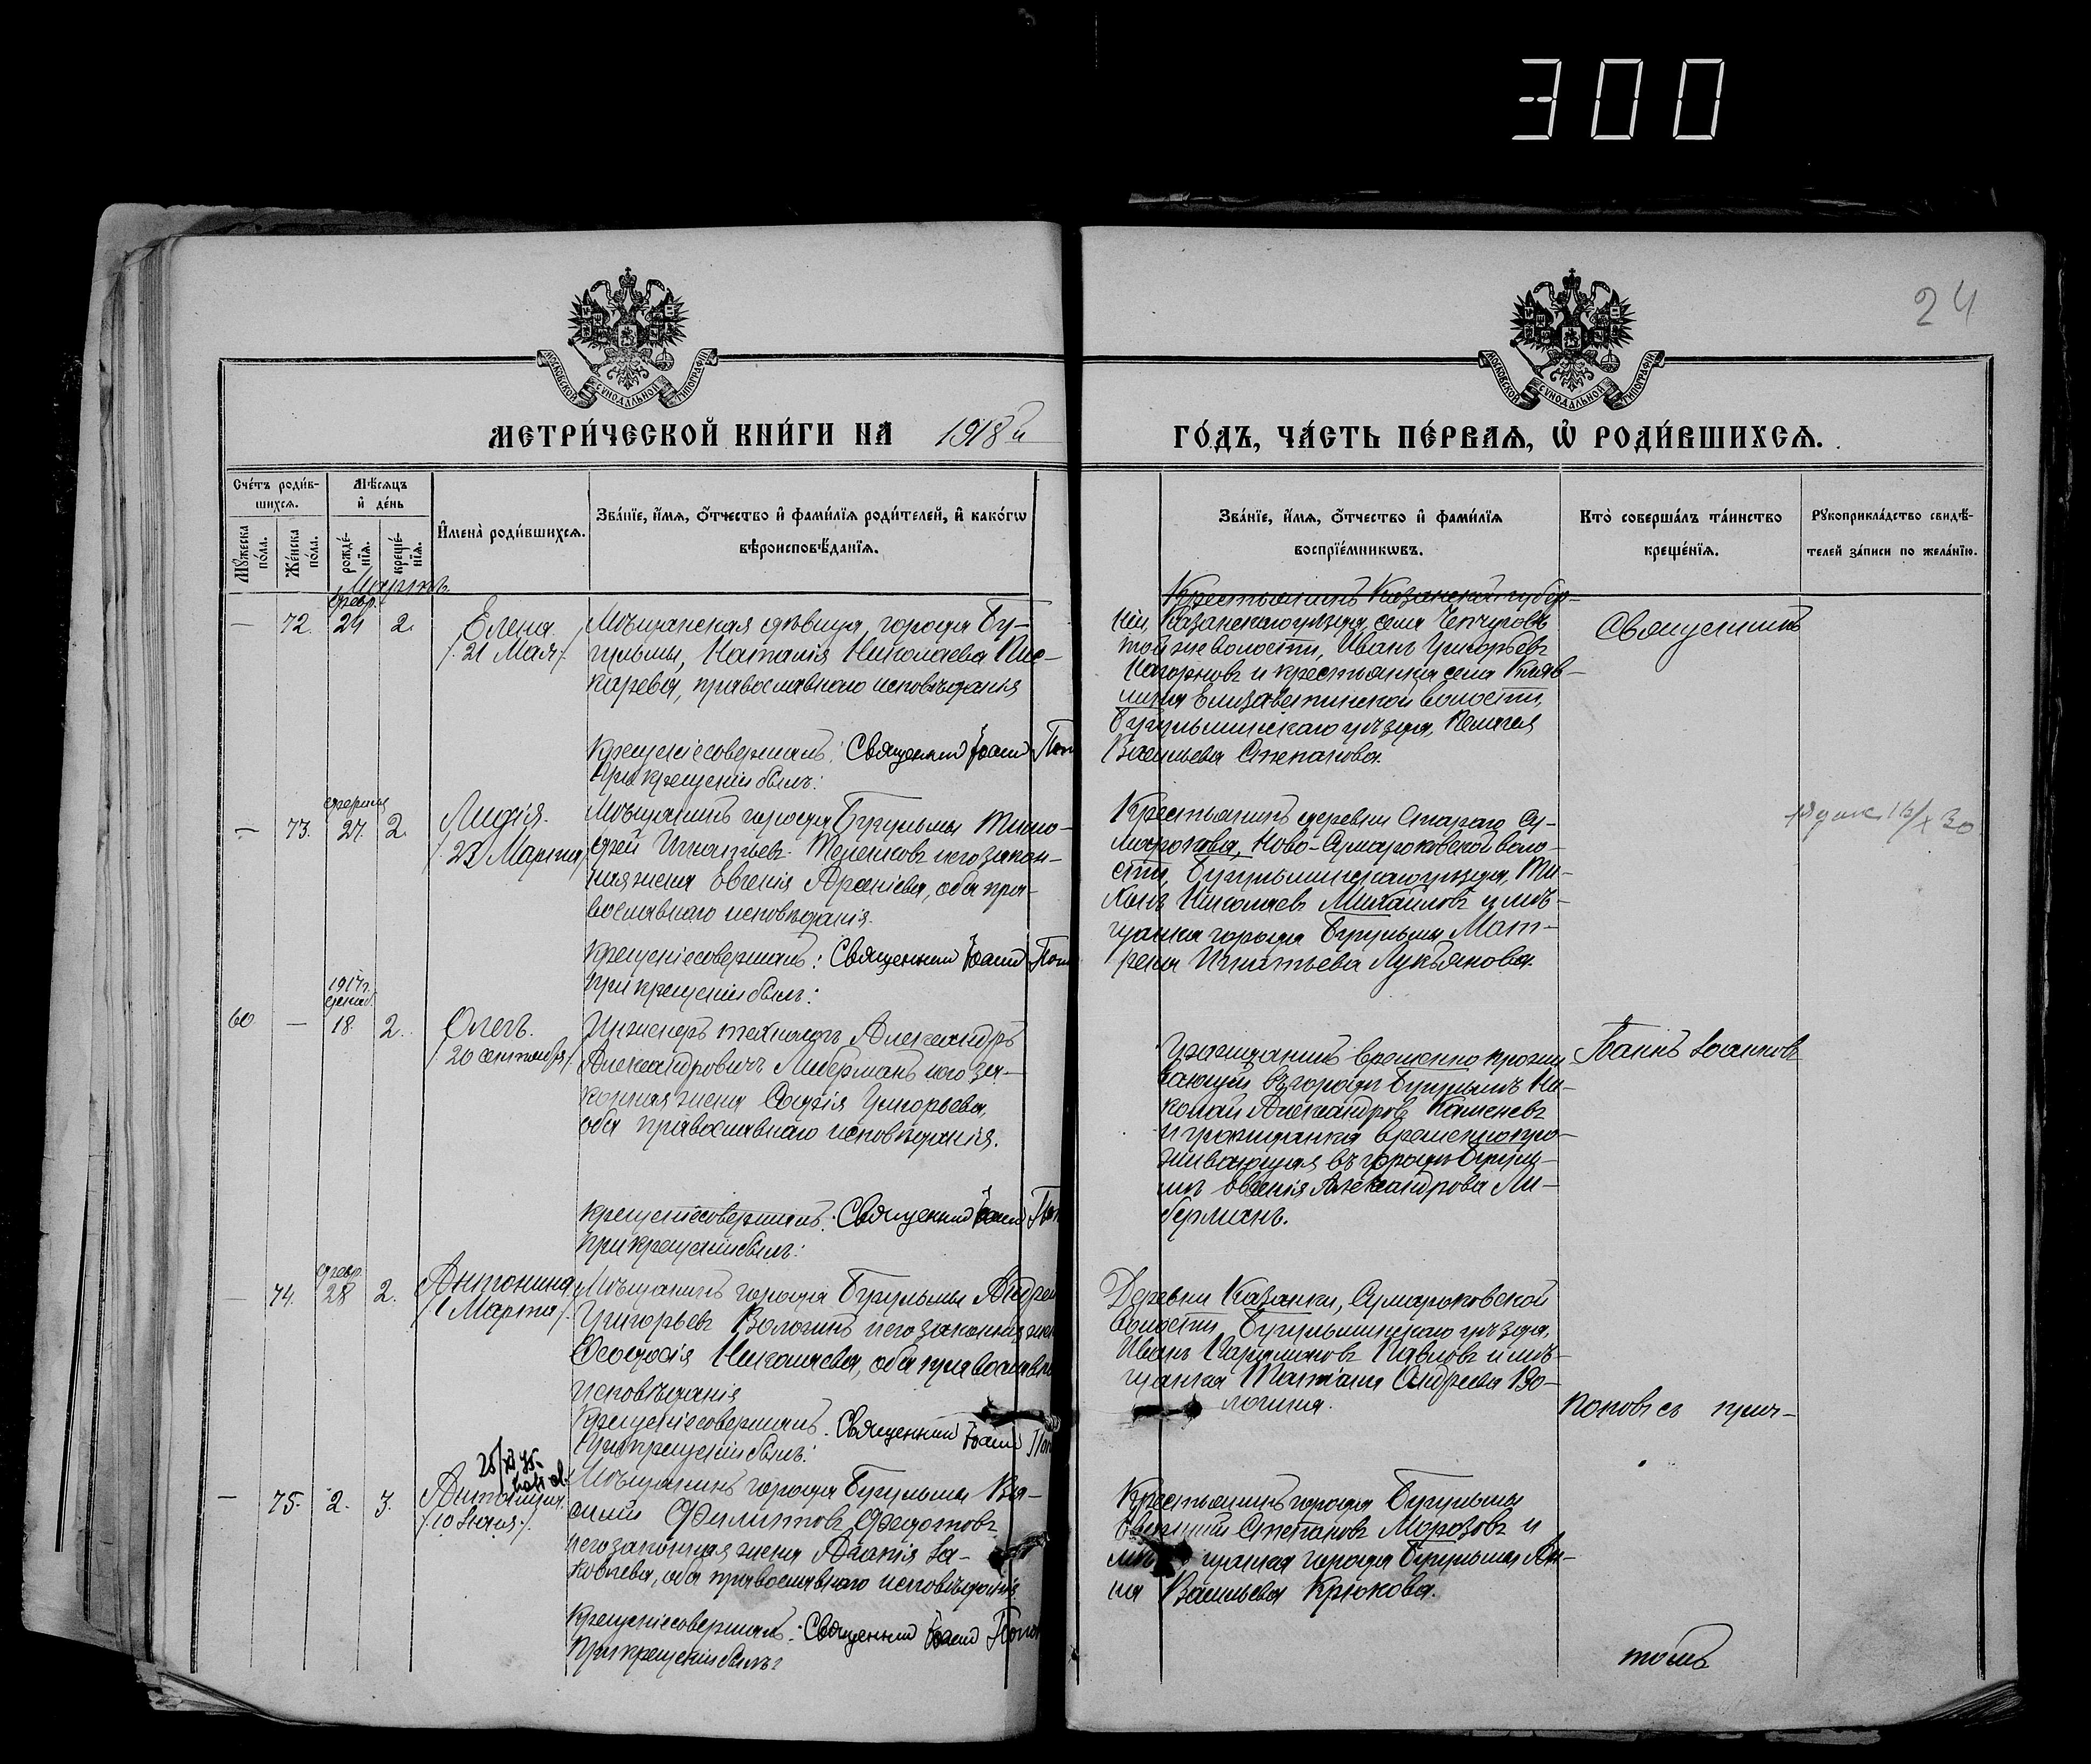 300
24
МОСКОВСКОЙ СѴНОДАЛЬНОЙ ТИПОГРАФІИ
МОСКОВСКОЙ СѴНОДАЛЬНОЙ ТИПОГРАФІИ
МЕТРИ́ЧЕСКОЙ КНИ́ГИ НА 1918 й
ГО́ДЪ, ЧА́СТЬ ПЕ́РВАѦ, Ѽ РОДИ́ВШИХСѦ.
Сче́тъ роди́в-
шихсѧ.
Мꙋ́жеска по́ла.
Же́нска по́ла.
Мѣ́сѧцъ
и҆ де́нь
рожде́-нїѧ.
креще́-нїѧ.
И҆мена̀ роди́вшихсѧ.
Зва́нїе, и҆́мѧ, ѻ҆́тчество и҆ фами́лїѧ роди́телей, и҆ како́гѡ
вѣроисповѣ́данїѧ.
Зва́нїе, и҆́мѧ, ѻ҆́тчество и҆ фами́лїѧ
воспрїе́мникѡвъ.
Кто̀ соверша́лъ та́инство
креще́нїѧ.
Рꙋкоприкла́дство свидѣ́-
телей за́писи по жела́нїю.
Мартъ.
февр.
— 72. 24 2.
Елена
/. 21 Мая /.
Мѣщанская дѣвица города Бу-
гульмы, Наталія Николаева Пис-
карева, православнаго исповѣданія
Крещеніе совершалъ: Священник Іоанн Поп
При крещеніи былъ:
Крестьянинъ Казанской губер-
ніи, Казанскаго уѣзда, села Чепчуговъ
той же волости, Иванъ Григорьевъ
и крестьянка села Кляв-
лина Елизаветинской волости,
Бугульминскаго уѣзда, Пелагея
Васильева Степанова.
Священникъ
февраля
— 73. 27. 2.
Лидія.
/. 23 Марта /.
Мѣщанинъ города Бугульмы Тимо-
фей Игнатьевъ и его закон-
ная жена Евгенія Арсеніева, оба пра-
вославнаго исповѣданія.
Крещеніе совершалъ: Священник Іоанн Поп
При крещеніи былъ:
Крестьянинъ деревни Стараго Су-
марокова, Ново-Сумароковской воло-
сти, Бугульминскаго уѣзда, Ти-
хонъ Николаевъ Михайловъ и мѣ-
щанка города Бугульмы Мат-
рена Игнатьева Лукьянова.
16/X 30
1917 г.
декаб.
60 — 18. 2.
Олегъ.
/. 20 сентября /.
Инженеръ технологъ Александръ
Александровичъ Либерманъ и его за-
конная жена Софія Григорьева,
оба православнаго исповѣданія.
Крещеніе совершалъ: Священник Іоанн Поп
При крещеніи былъ:
Гражданинъ временно прожи
вающій въ городѣ Бугульмѣ Ни-
колай Александровъ Каменевъ
и гражданка временно про-
живающая въ городѣ Бугуль-
мѣ Евгенія Александрова Ли-
берманъ.
Іоаннъ Іоанновъ
февр.
— 74. 28 2.
Антонина
/. 1 Марта /.
Мѣщанинъ города Бугульмы Андрей
Григорьевъ Вологинъ и его законная жен
Феодосія Николаева, оба православн
исповѣданія
Крещеніе совершалъ: Священник Іоанн Поп
При крещеніи былъ:
Деревни Казанки, Сумароковской
волости, Бугульминскаго уѣзда,
Иванъ Павловъ и мѣ-
щанка Татіана Андреева Во-
логина.
Поповъ съ прич-
— 75. 2. 3.
Антонина.
/. 10 Іюня /.
Мѣщанинъ города Бугульмы Ва-
силій Филипповъ Федотовъ
и его законная жена Агафія Іа-
ковлева, оба православнаго исповѣданія
Крещеніе совершалъ: Священник Іоанн Попов
При крещеніи былъ:
Крестьянинъ города Бугульмы
Евгеній Степановъ Морозовъ и
мѣщанка города Бугульмы Ан-
на Васильева Крюкова.
томъ